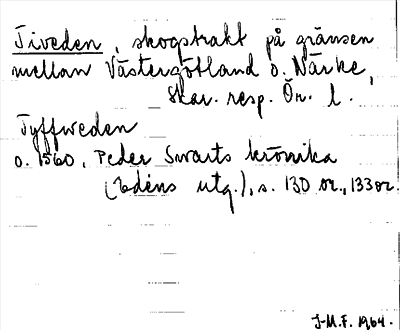 Tiveden, skogstrakt på gränsen
mellan Västergötland o. Närke,
Skar. resp. Ör. l.
Tyffweden
o. 1560. Peder Swarts krönika
(Edéns utg.), s. 130 or., 133 or.
J-M.F. 1964.